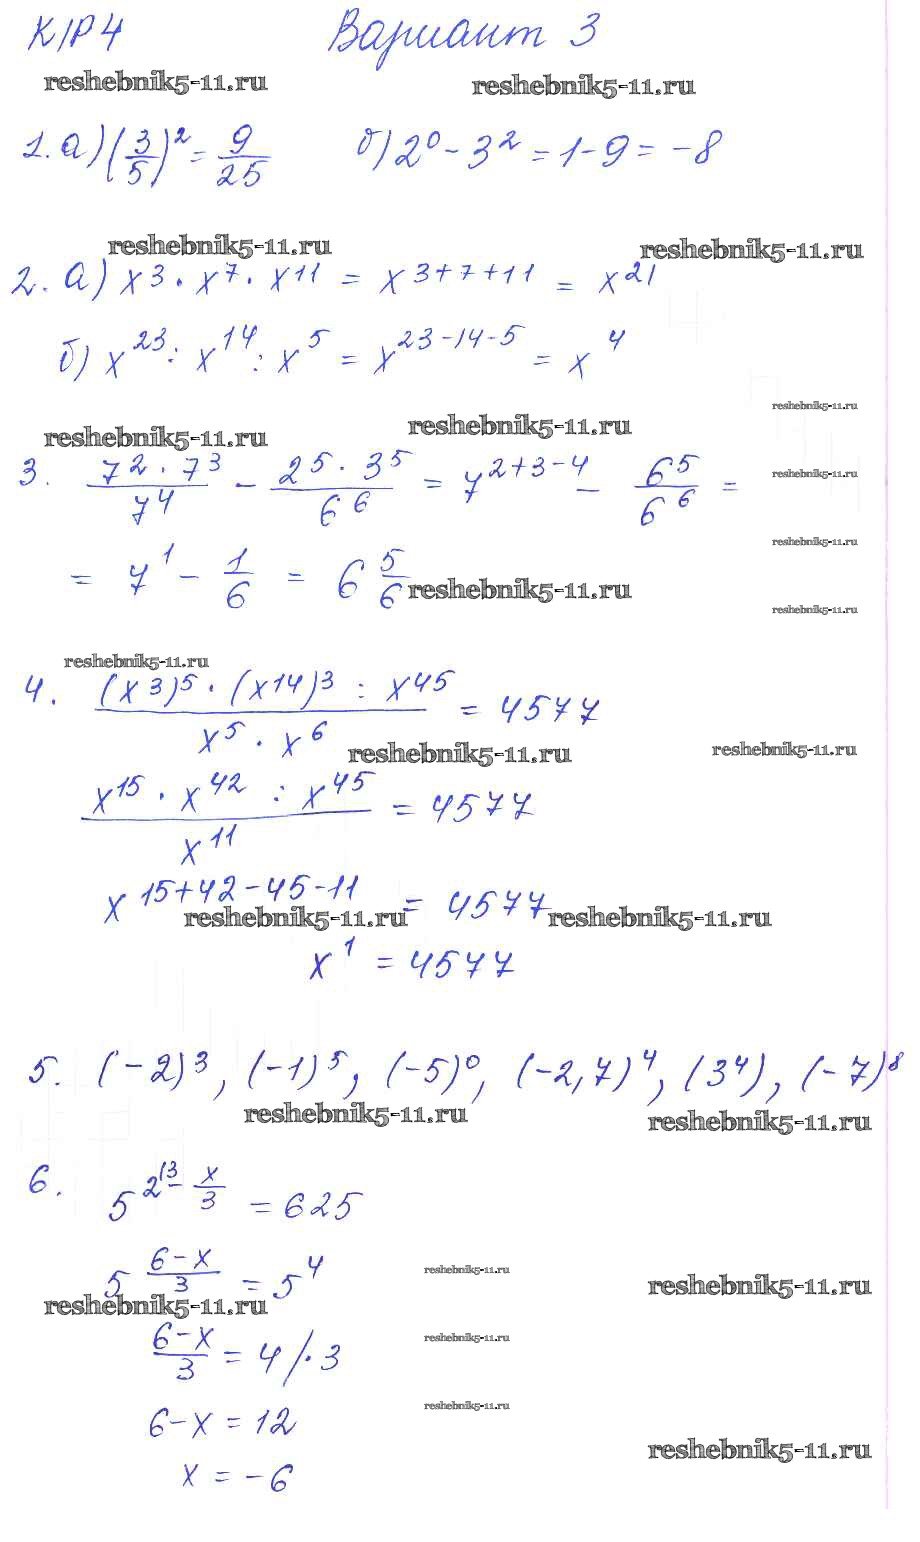 К/Р 4 Вариант 3
reshebnik5-11.ru reshebnik5-11.ru
1. а) (3/5)² = 9/25 б) 2⁰ - 3² = 1 - 9 = -8
reshebnik5-11.ru reshebnik5-11.ru
2. а) x³ · x⁷ · x¹¹ = x³⁺⁷⁺¹¹ = x²¹
б) x²³ : x¹⁴ : x⁵ = x²³⁻¹⁴⁻⁵ = x⁴
reshebnik5-11.ru
reshebnik5-11.ru reshebnik5-11.ru
3. (7² · 7³)/7⁴ - (2⁵ · 3⁵)/6⁶ = 7²⁺³⁻⁴ - 6⁵/6⁶ =
reshebnik5-11.ru
reshebnik5-11.ru
= 7¹ - 1/6 = 6 5/6
reshebnik5-11.ru
reshebnik5-11.ru
reshebnik5-11.ru
4. ((x³)⁵ · (x¹⁴)³ : x⁴⁵)/(x⁵ · x⁶) = 4577
reshebnik5-11.ru reshebnik5-11.ru
(x¹⁵ · x⁴² : x⁴⁵)/x¹¹ = 4577
x¹⁵⁺⁴²⁻⁴⁵⁻¹¹ = 4577
reshebnik5-11.ru reshebnik5-11.ru
x¹ = 4577
5. (-2)³, (-1)⁵, (-5)⁰, (-2,7)⁴, (3⁴), (-7)⁸
reshebnik5-11.ru reshebnik5-11.ru
6. 5^(2^(\3) - x/3) = 625
5^((6-x)/3) = 5⁴
reshebnik5-11.ru
reshebnik5-11.ru reshebnik5-11.ru
(6-x)/3 = 4 /· 3
reshebnik5-11.ru
6-x = 12
reshebnik5-11.ru
reshebnik5-11.ru
x = -6